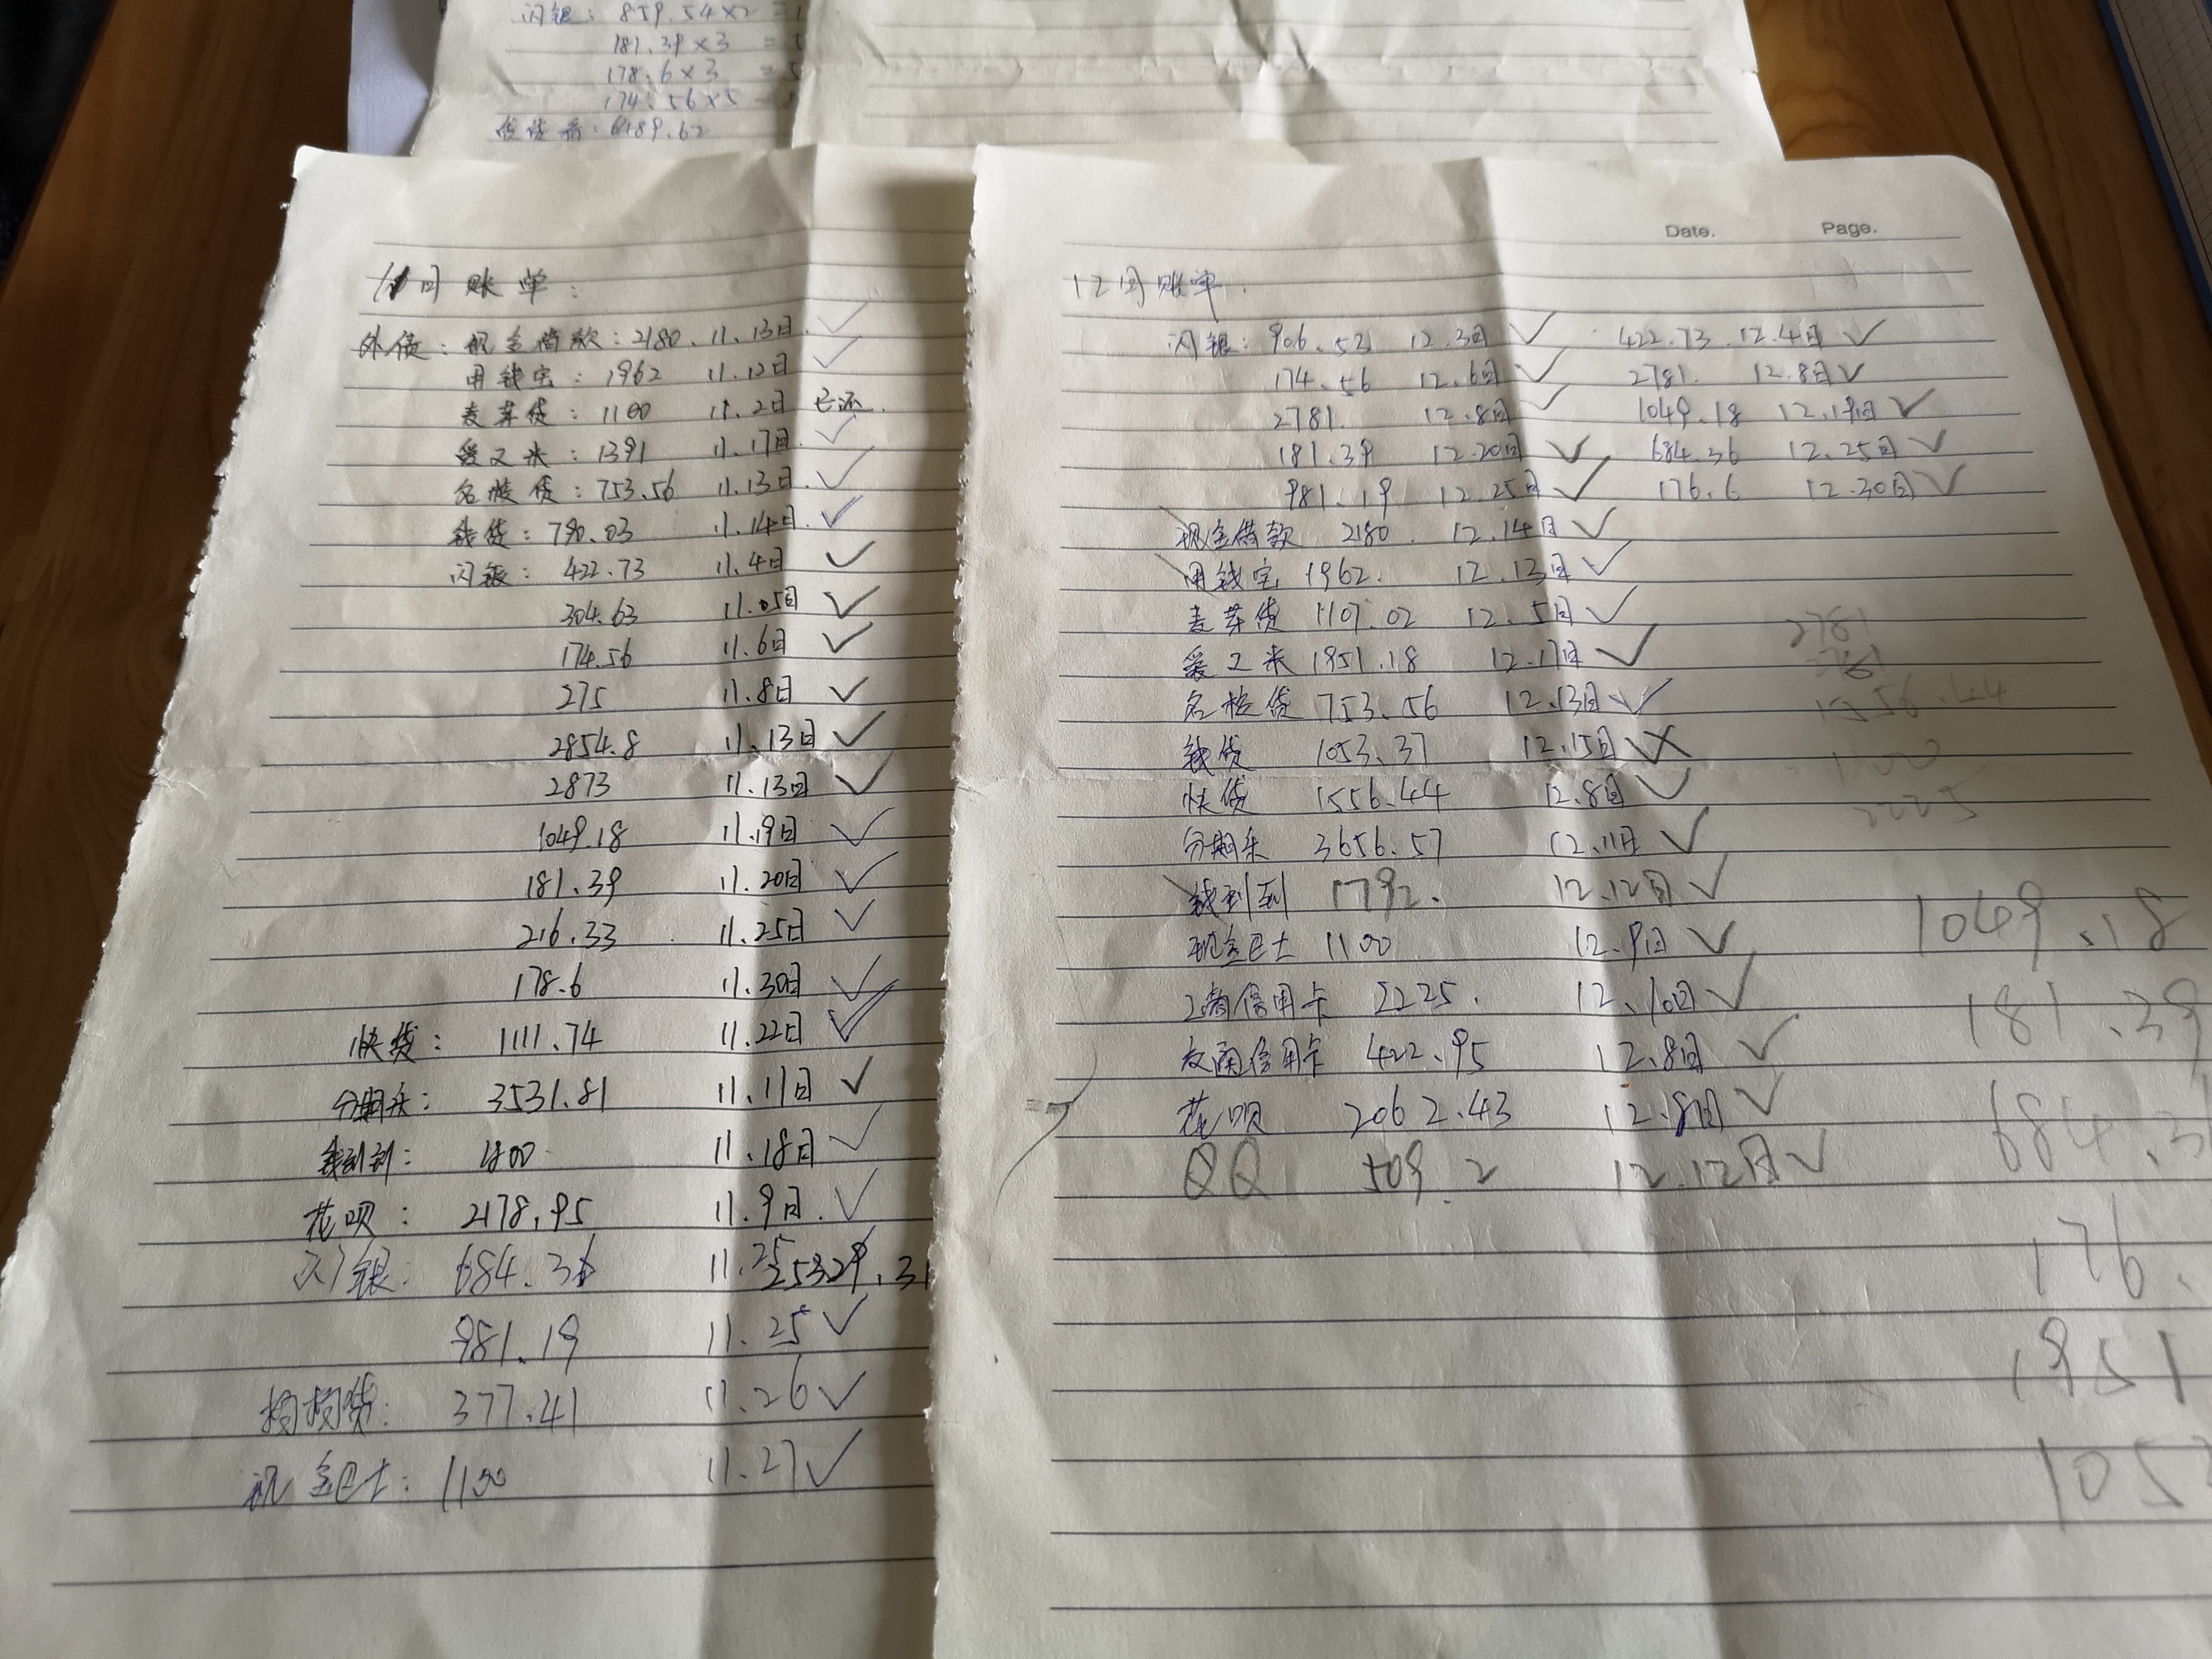 闪银: 859.54×2 =
181.39×3 =
178.6×3 =
174.56×5 =
6489.62
11月账单:
外债: 现金借款: 2180. 11.13日 ✓
用钱宝: 1962 11.12日 ✓
麦芽贷: 1100 11.2日 已还.
爱又米: 1391 11.17日 ✓
名校贷: 753.56 11.13日 ✓
钱贷: 790.03 11.14日 ✓
闪银: 422.73 11.4日 ✓
304.63 11.05日 ✓
174.56 11.6日 ✓
275 11.8日 ✓
2854.8 11.13日 ✓
2873 11.13日 ✓
1049.18 11.19日 ✓
181.39 11.20日 ✓
216.33 11.25日 ✓
178.6 11.30日 ✓
快贷: 1111.74 11.22日 ✓
分期乐: 3531.81 11.11日 ✓
钱到到: 1800 11.18日 ✓
花呗: 2178.95 11.9日. ✓
闪银: 684.36 11.25 25329.31
981.19 11.25 ✓
377.41 11.26 ✓
现金巴士: 1100 11.27 ✓
Date. Page.
12月账单.
闪银: 906.53 12.3日 ✓ 422.73 12.4日 ✓
174.56 12.6日 ✓ 2781. 12.8日 ✓
2781. 12.8日 ✓ 1049.18 12.19日 ✓
181.39 12.20日 ✓ 684.36 12.25日 ✓
981.19 12.25日 ✓ 176.6 12.30日 ✓
现金借款 2180. 12.14日 ✓
用钱宝 1962. 12.13日 ✓
麦芽贷 1107.02 12.5日 ✓
爱又米 1951.18 12.17日 ✓
名校贷 753.56 12.13日 ✓
钱贷 1053.37 12.15日
快贷 1556.44 12.8日 ✓
分期乐 3656.57 12.11日 ✓
钱到到 1792. 12.12日 ✓
现金巴士 1100 12.9日 ✓
工商信用卡 2225. 12.10日 ✓
交通信用卡 422.95 12.8日 ✓
花呗 2062.43 12.8日 ✓
QQ 509.2 12.12日 ✓
2781
2781
1556.44
1100
2225
1049.18
181.39
684.3
176.
1951
105